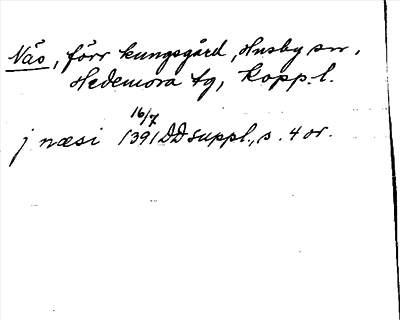 Näs, förr kungsgård, Husby sn,
Hedemora tg, Kopp. l.
16/7
j næsi 1391 DD suppl., s. 4 or.